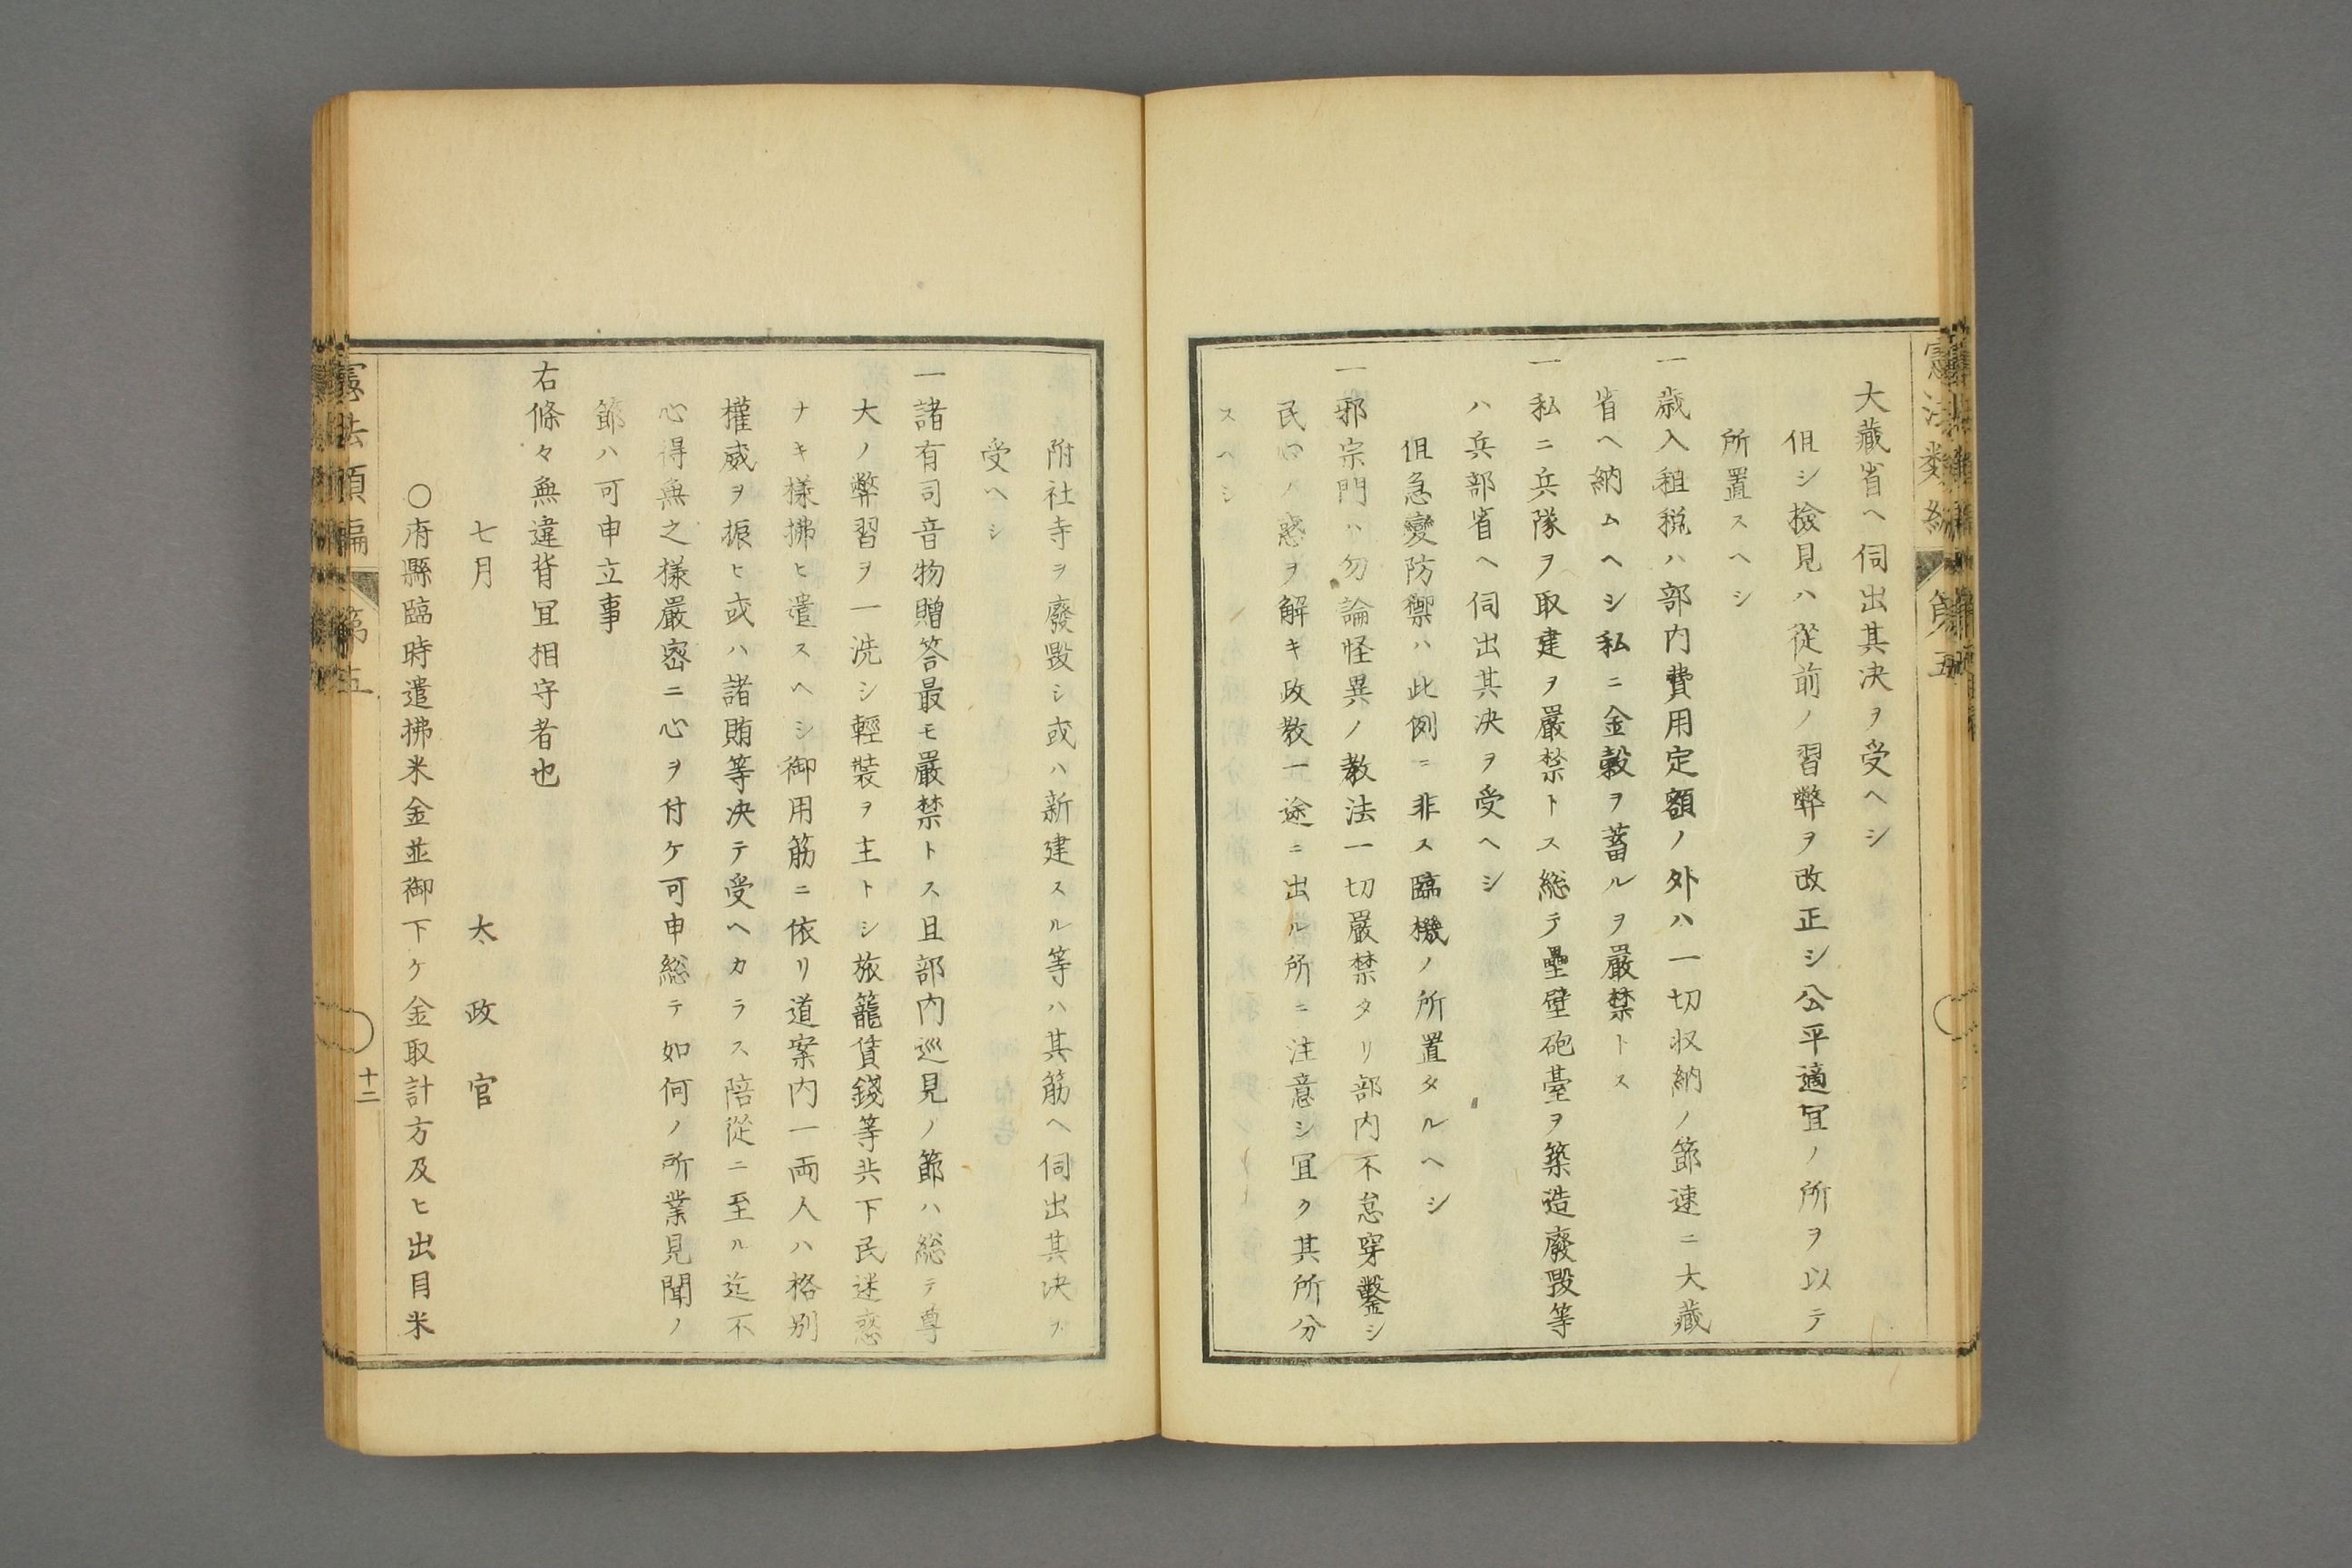 大藏省ヘ伺出其决ヲ受ヘシ
但シ撿見ハ從前ノ習弊ヲ改正シ公平適冝ノ所ヲ以テ
所置スヘシ
一歳入租税ハ部内費用定額ノ外ハ一切収納ノ節速ニ大藏
省ヘ納ムヘシ私ニ金穀ヲ蓄ルヲ嚴禁トス
一私ニ兵隊ヲ取建ヲ嚴禁トス総テ壘壁砲臺ヲ築造廢毀等
ハ兵部省ヘ伺出其决ヲ受ヘシ
但急變防禦ハ此例ニ非ス臨機ノ所置タルヘシ
一邪宗門ハ勿論怪異ノ教法一切嚴禁タリ部内不怠穿鑿シ
民心ノ惑ヲ解キ政教一途ニ出ル所ニ注意シ冝ク其所分
スヘシ
憲法類編 第五
附社寺ヲ廢毀シ或ハ新建スル等ハ其筋ヘ伺出其决ヲ
受ヘシ
一諸有司音物贈答最モ嚴禁トス且部内巡見ノ節ハ総テ尊
大ノ弊習ヲ一洗シ輕裝ヲ主トシ旅籠賃錢等共下民迷惑
ナキ樣拂ヒ遣スヘシ御用筋ニ依リ道案内一両人ハ格別
權威ヲ振ヒ或ハ諸賄等决テ受ヘカラス陪從ニ至ル迄不
心得無之樣嚴密ニ心ヲ付ケ可申総テ如何ノ所業見聞ノ
節ハ可申立事
右條々無違背冝相守者也
七月　太政官
○府縣臨時遣拂米金並御下ケ金取計方及ヒ出目米
憲法類編 第五 十二